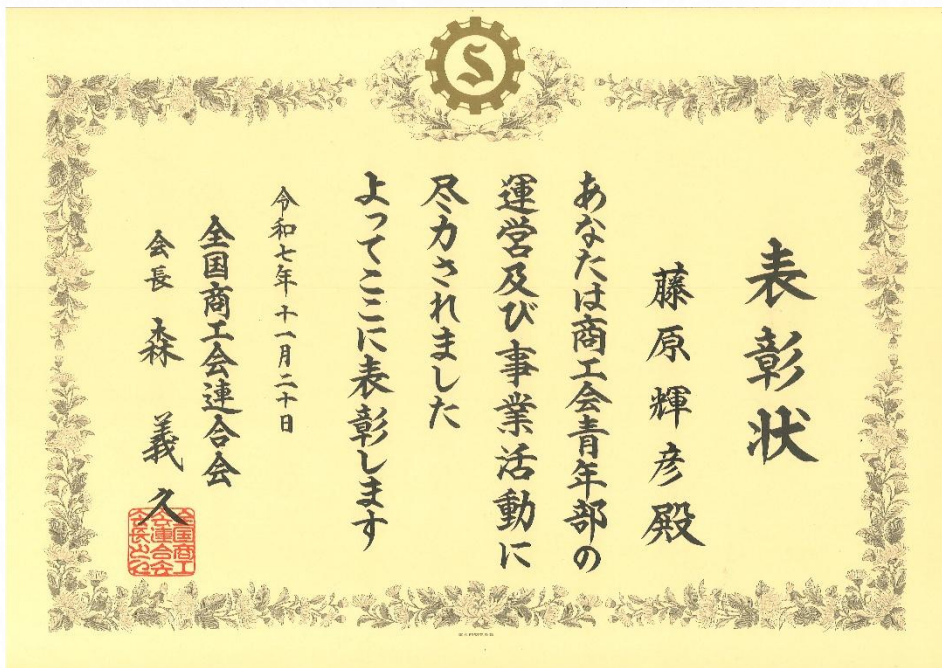 表彰状
藤原輝彦殿
あなたは商工会青年部の
運営及び事業活動に
尽力されました
よってここに表彰します
令和七年十一月二十日
全国商工会連合会
会長 森義久
全国商工
会連合会
会長之印
S